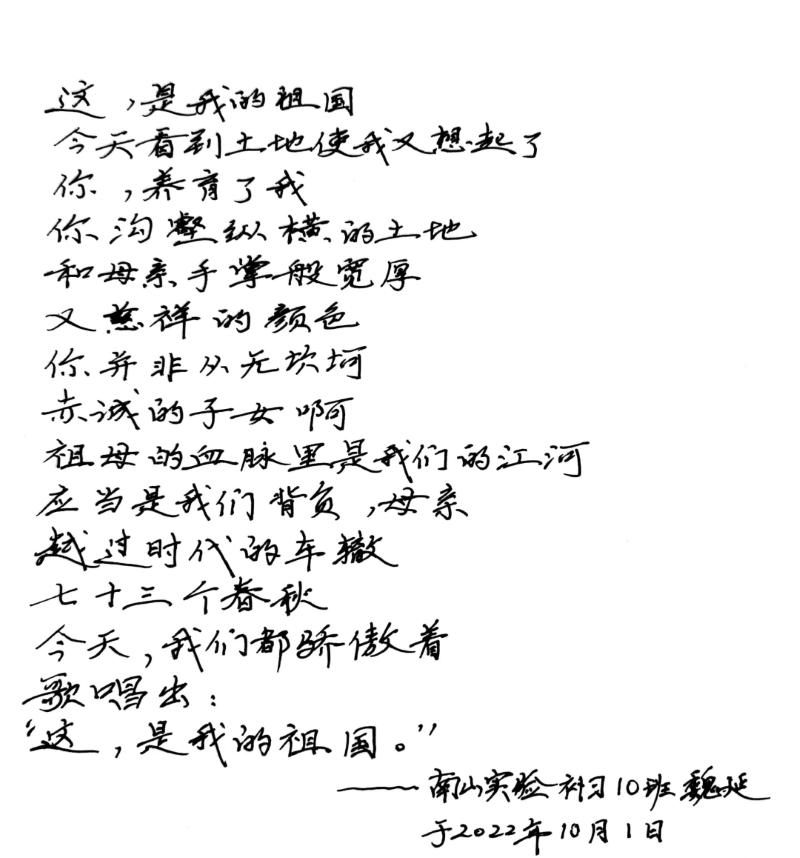 这，是我的祖国
今天看到土地使我又想起了
你，养育了我
你沟壑纵横的土地
和母亲手掌般宽厚
又慈祥的颜色
你并非从无坎坷
赤诚的子女啊
祖母的血脉里是我们的江河
应当是我们背负，母亲
越过时代的车辙
七十三个春秋
今天，我们都骄傲着
歌唱出：
“这，是我的祖国。”
——南山实验补习10班魏延
于2022年10月1日